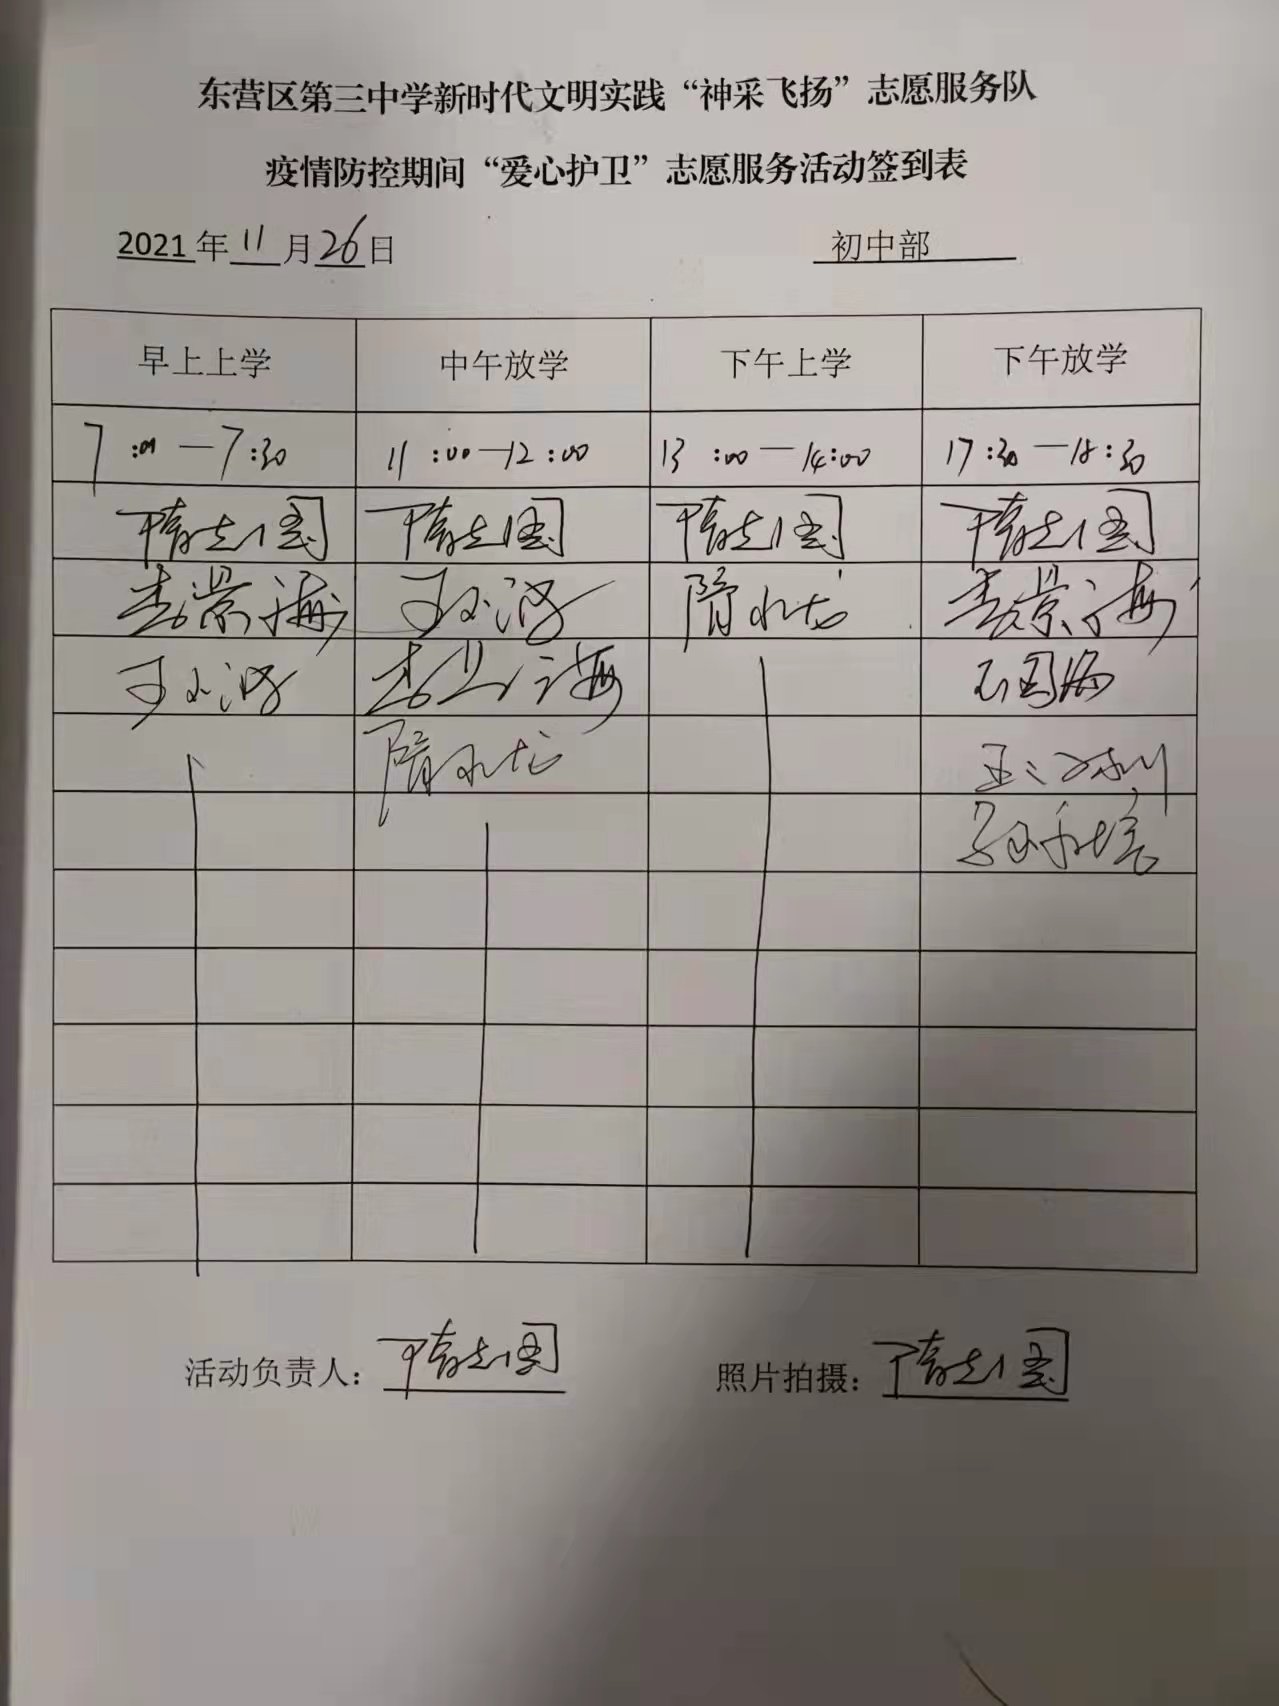 东营区第三中学新时代文明实践“神采飞扬”志愿服务队
疫情防控期间“爱心护卫”志愿服务活动签到表
2021年11月26日 初中部
早上上学 中午放学 下午上学 下午放学
7:00—7:30 11:00—12:00 13:00—14:00 17:30—18:30
隋志国 隋志国 隋志国 隋志国
李景海 隋水龙 李景海
李 海 石国海
隋水龙
活动负责人：隋志国 照片拍摄：隋志国